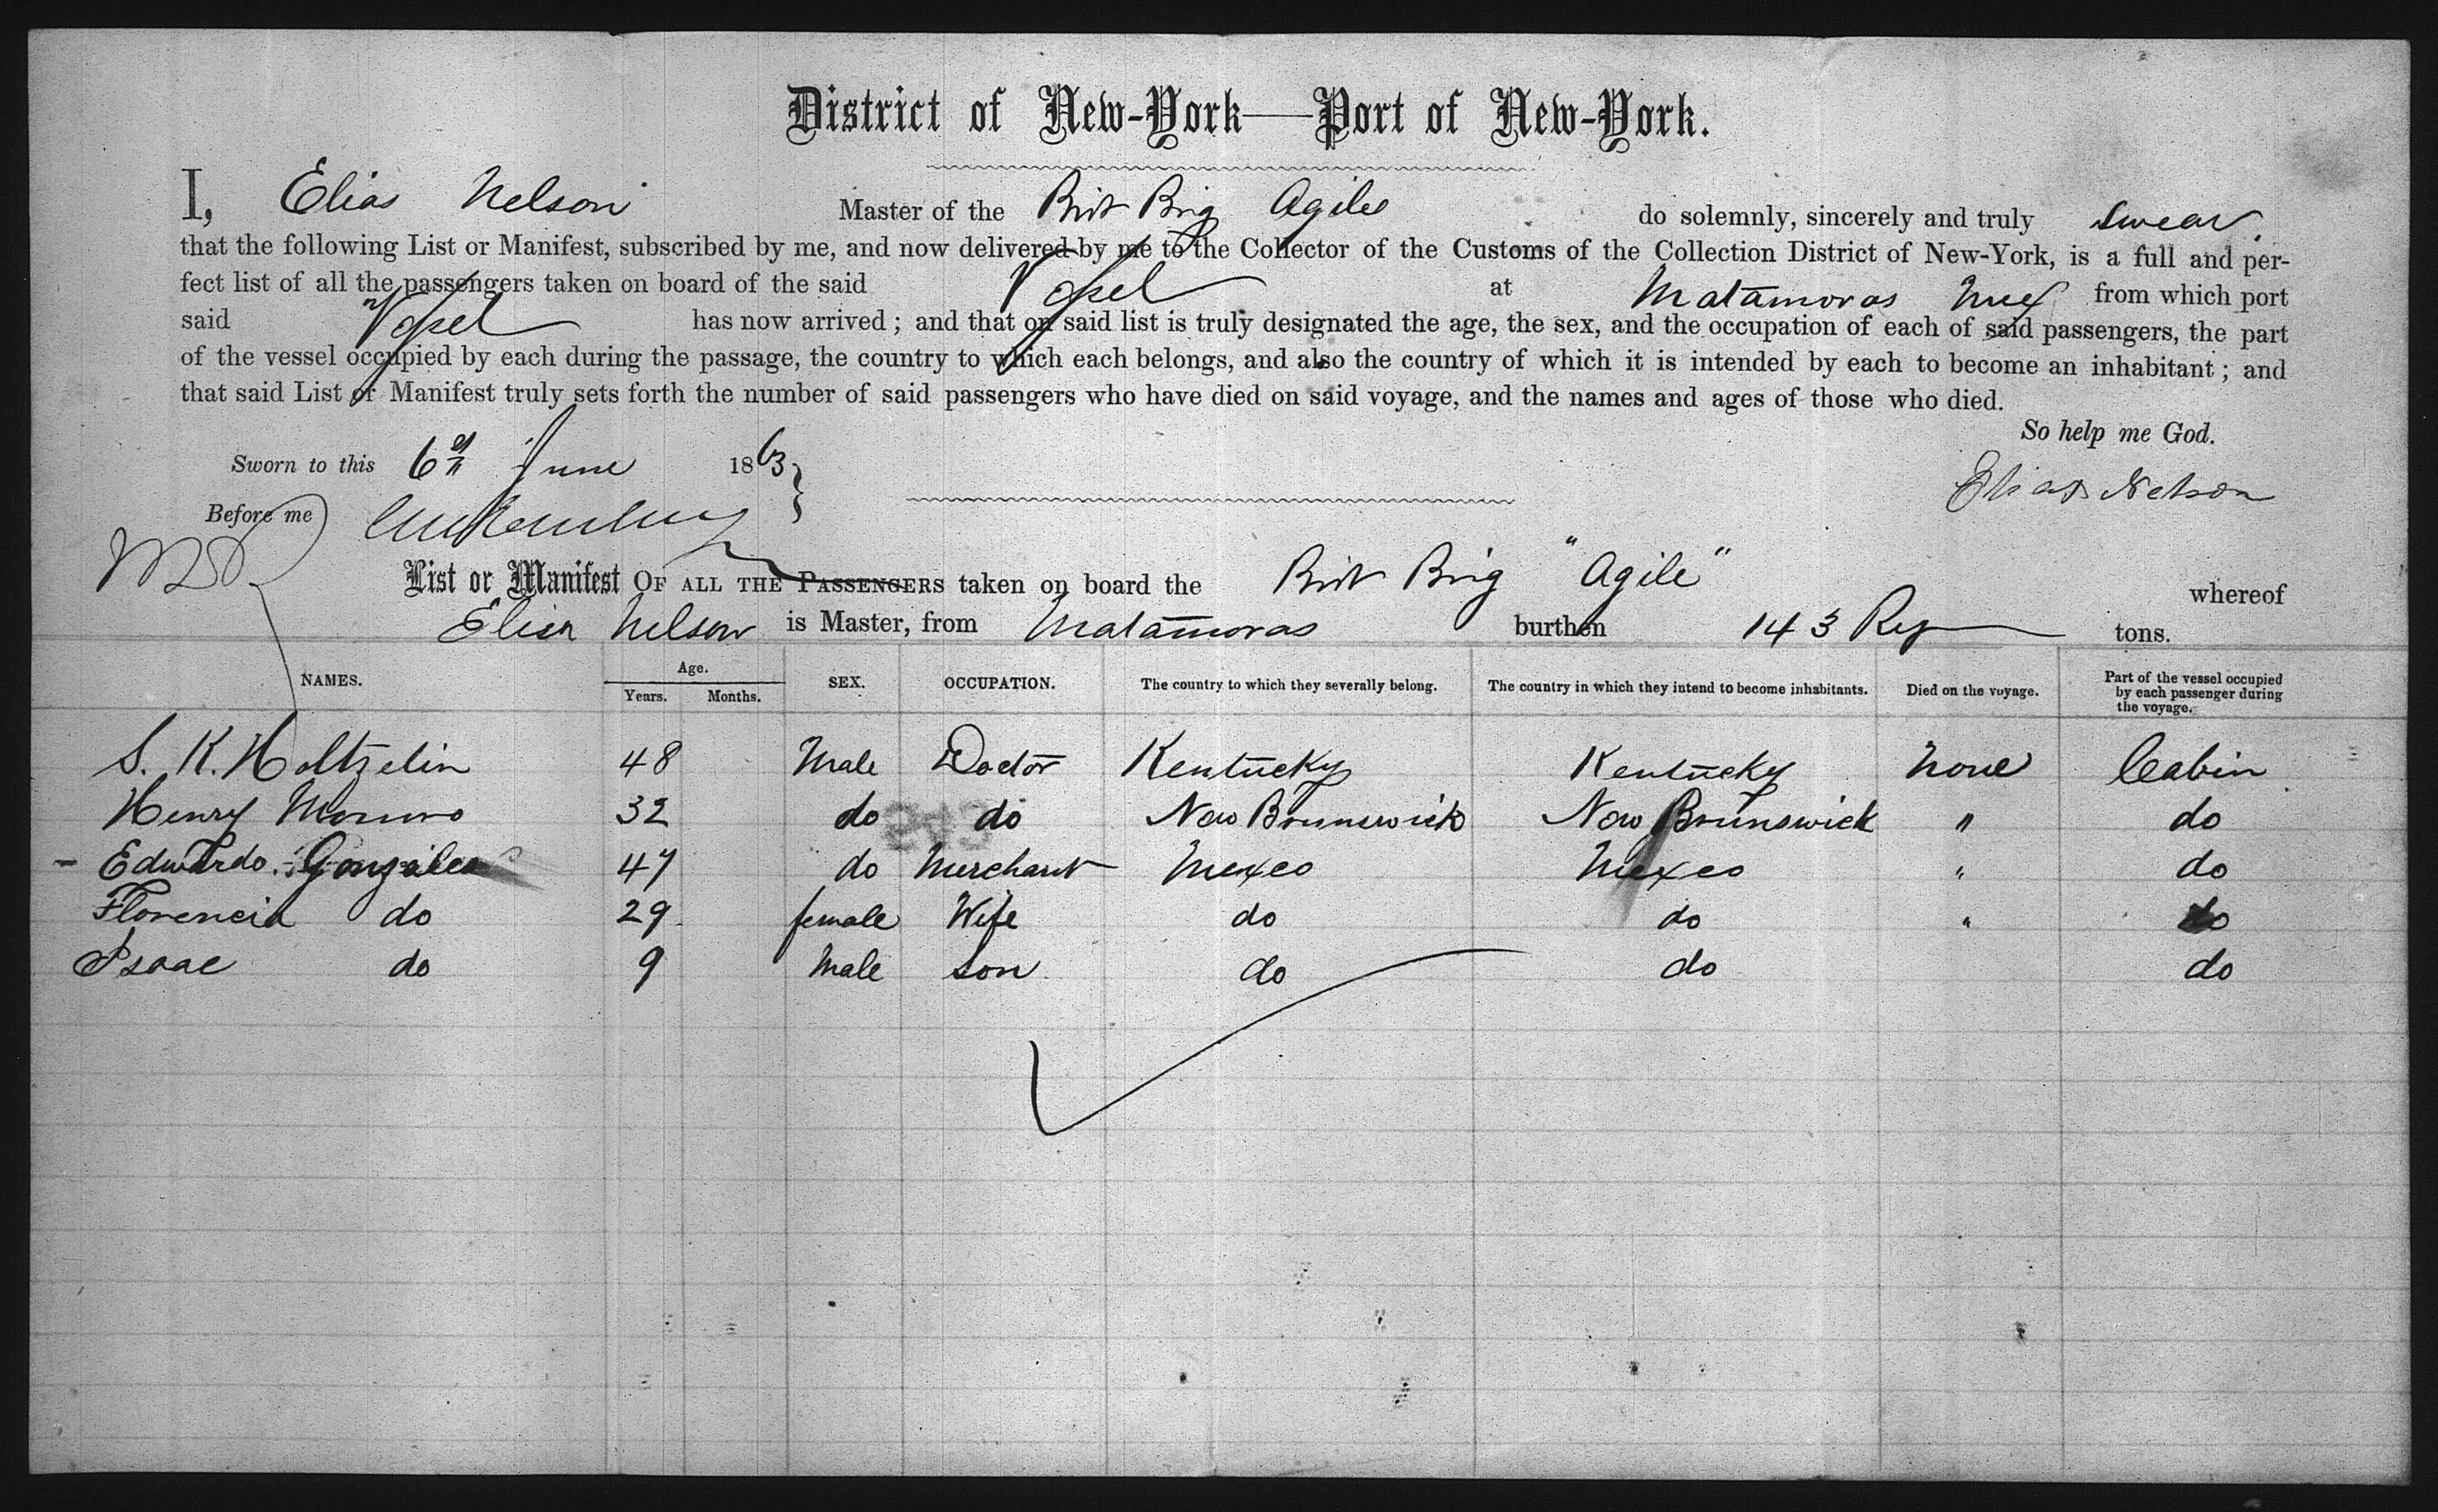 District of New-York—Port of New-York.
I, Elias Nelson Master of the Brit Brig Agile do solemnly, sincerely and truly swear
that the following List or Manifest, subscribed by me, and now delivered by me to the Collector of the Customs of the Collection District of New-York, is a full and per-
fect list of all the passengers taken on board of the said Vessel at Matamoras Mex from which port
said Vessel has now arrived; and that on said list is truly designated the age, the sex, and the occupation of each of said passengers, the part
of the vessel occupied by each during the passage, the country to which each belongs, and also the country of which it is intended by each to become an inhabitant; and
that said List or Manifest truly sets forth the number of said passengers who have died on said voyage, and the names and ages of those who died.
So help me God.
Sworn to this 6th June 1863
Elias Nelson
Before me
List or Manifest OF ALL THE PASSENGERS taken on board the Brit Brig "Agile" whereof
Elias Nelson is Master, from Matamoras burthen 143 Reg tons.
NAMES. Age. Years. Months. SEX. OCCUPATION. The country to which they severally belong. The country in which they intend to become inhabitants. Died on the voyage. Part of the vessel occupied by each passenger during the voyage.
S. K. Holtzelin 48 Male Doctor Kentucky Kentucky None Cabin
Henry Monro 32 do do New Brunswick New Brunswick " do
Edwardo Gonzales 47 do Merchant Mexco Mexco " do
Florencia do 29 female Wife do do " do
Isaac do 9 Male son do do do